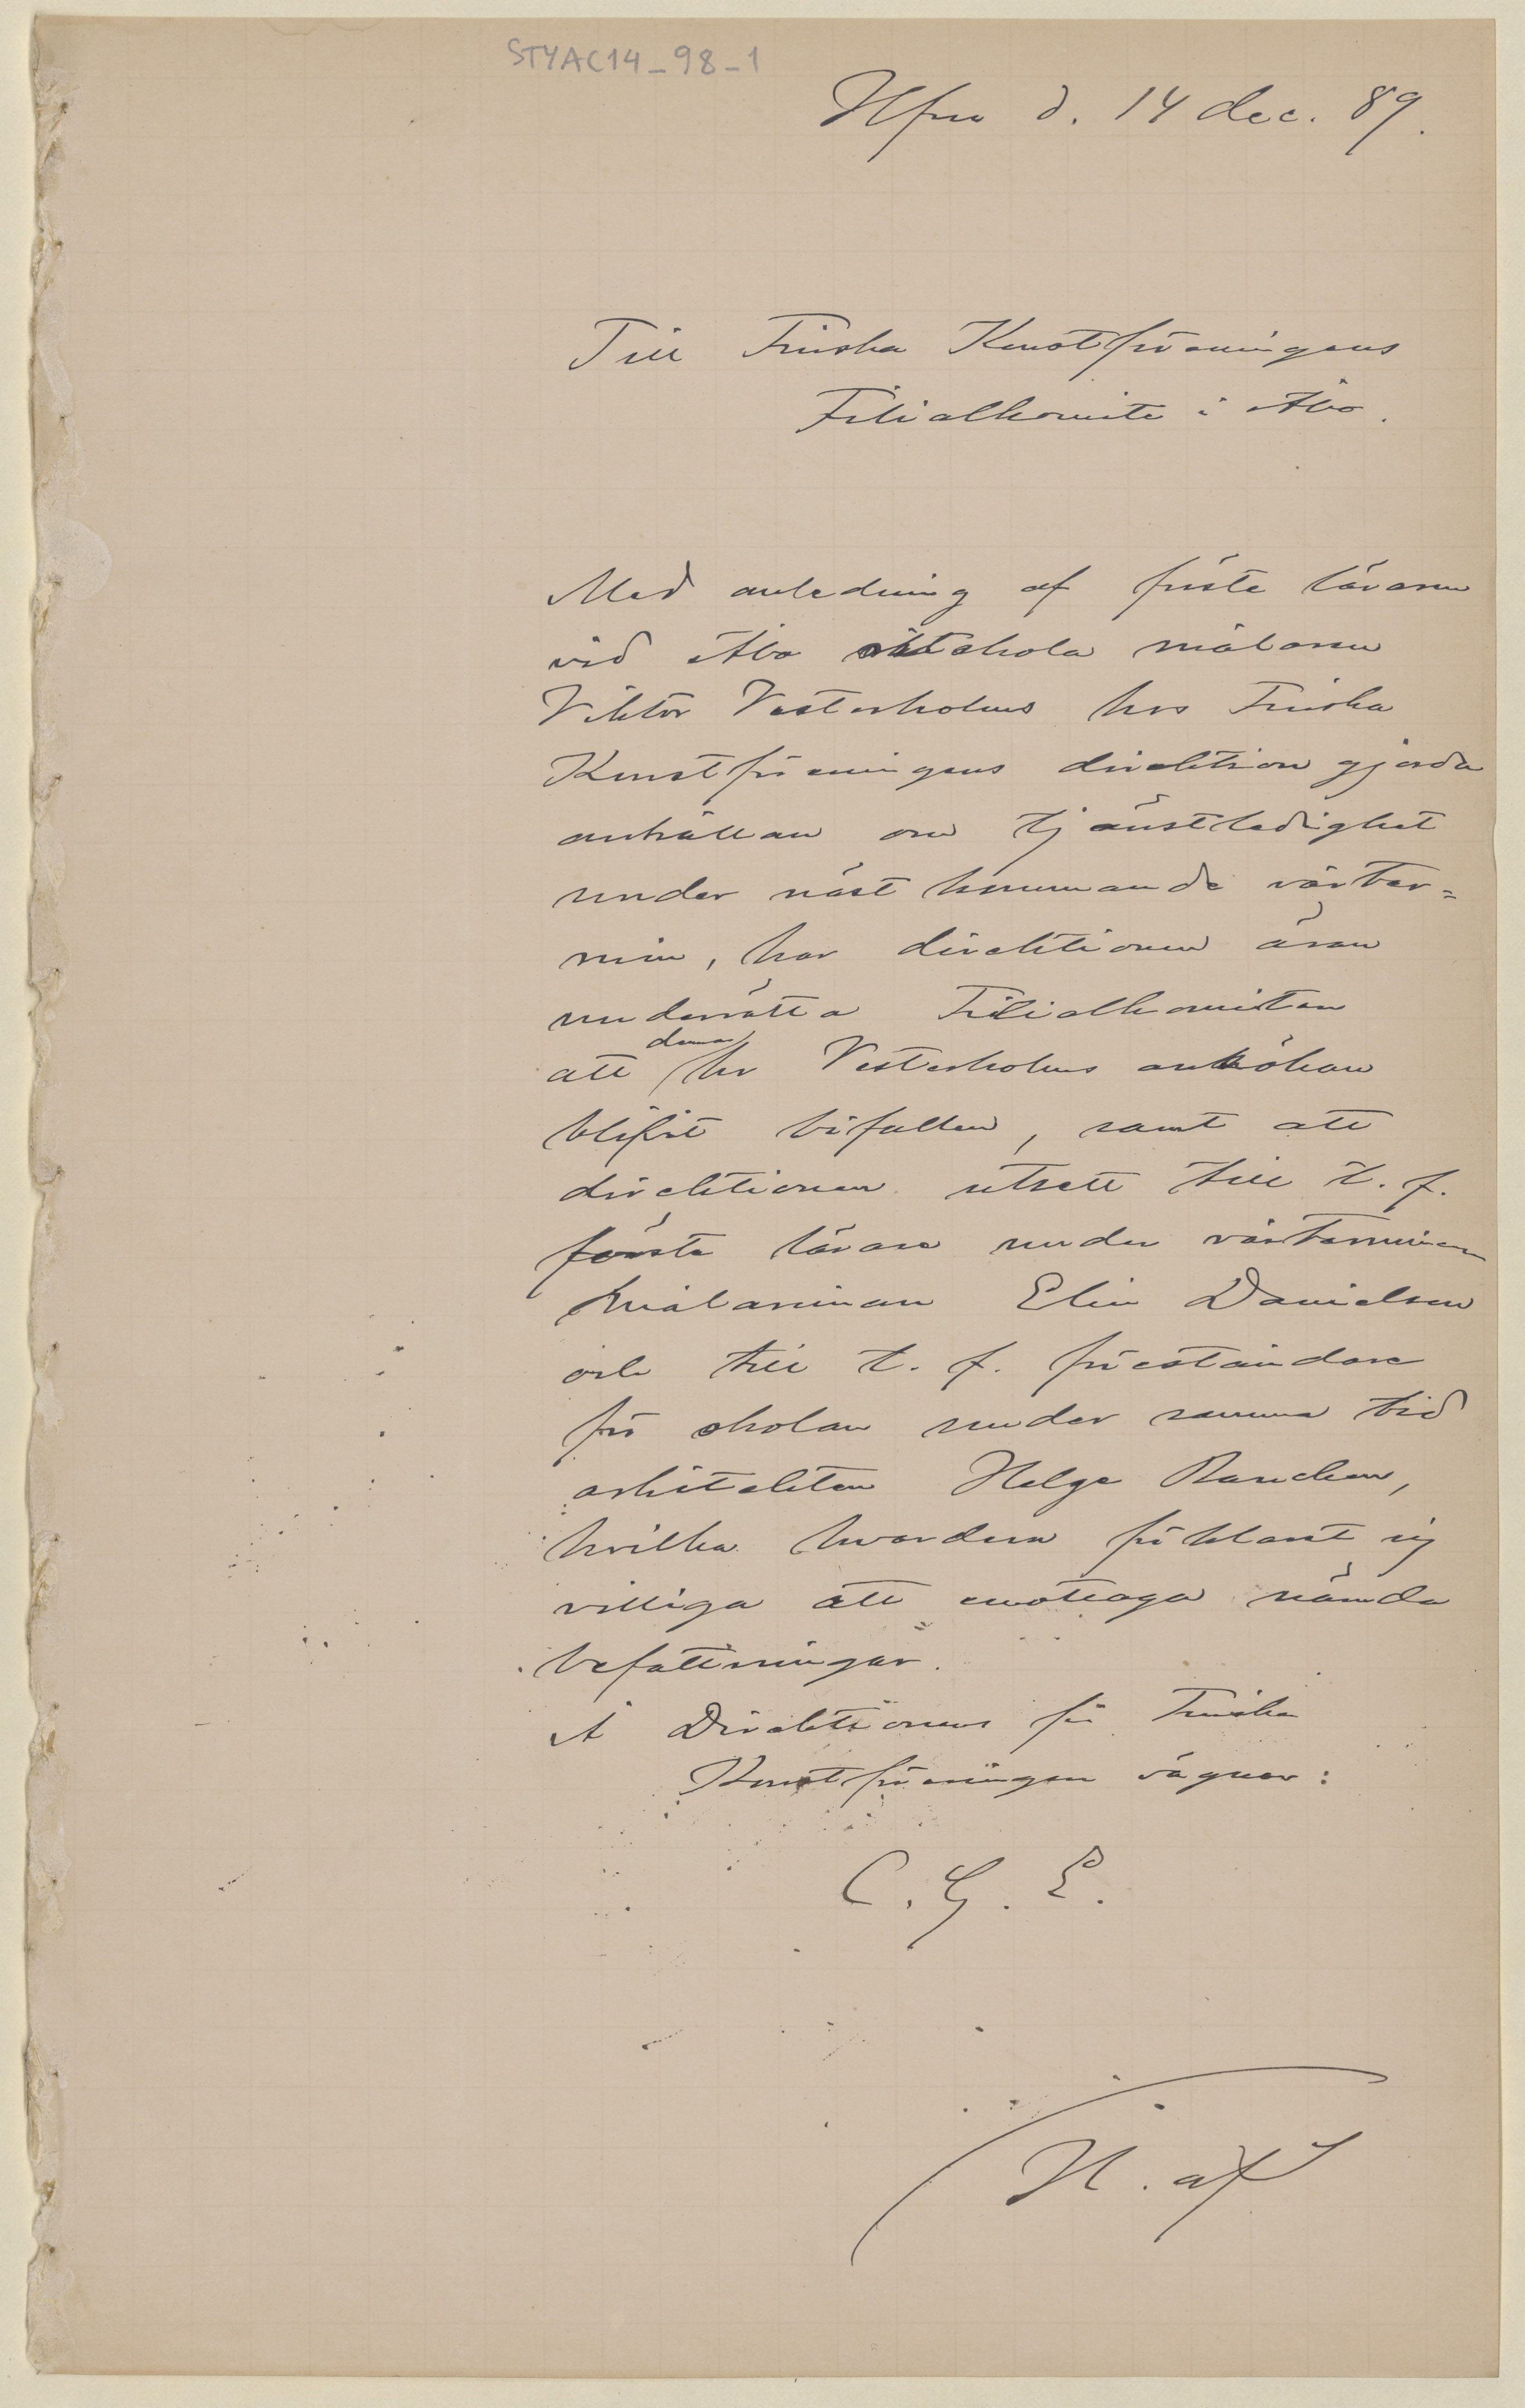 STYAC14_98_1
Hfrs d. 14 dec. 89.
Till Finska Konstföreningens
Filialkomité i Åbo.
Med anledning af förste läraren
vid Åbo ritskola målaren
Viktor Vesterholms hos Finska
Konstföreningens direktion gjorda
anhållan om tjänstledighet
under näst kommande vårter=
min, har direktionen äran
underrätta Filialkomitén
att denna hr Vesterholms ansökan
blifvit bifallen, samt att
direktionen utsett till t. f.
förste lärare under vårterminen
målarinnan Elin Danielson
och till t. f. föreståndare
för skolan under samma tid
arkitekten Helge Rancken,
hvilka hvardera förklarat sig
villiga att emottaga nämda
befattningar.
Å Direktionens för Finska
Konstföreningen vägnar:
C. G. E.
H. af